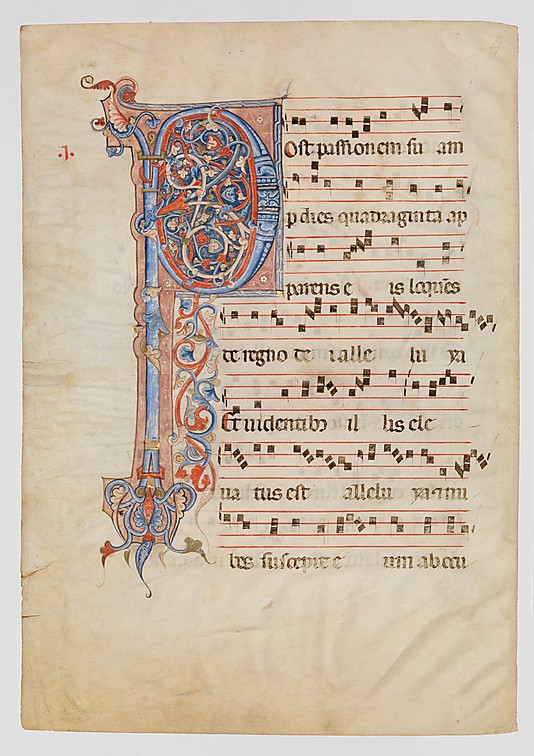 .J.
Post passionem su am
p dies quadraginta ap
parens e is loquēs
de regno de i alle lu ya
Et uidentibȝ il lis ele
ua tus est allelu ya
bes suscepit e um ab ocu